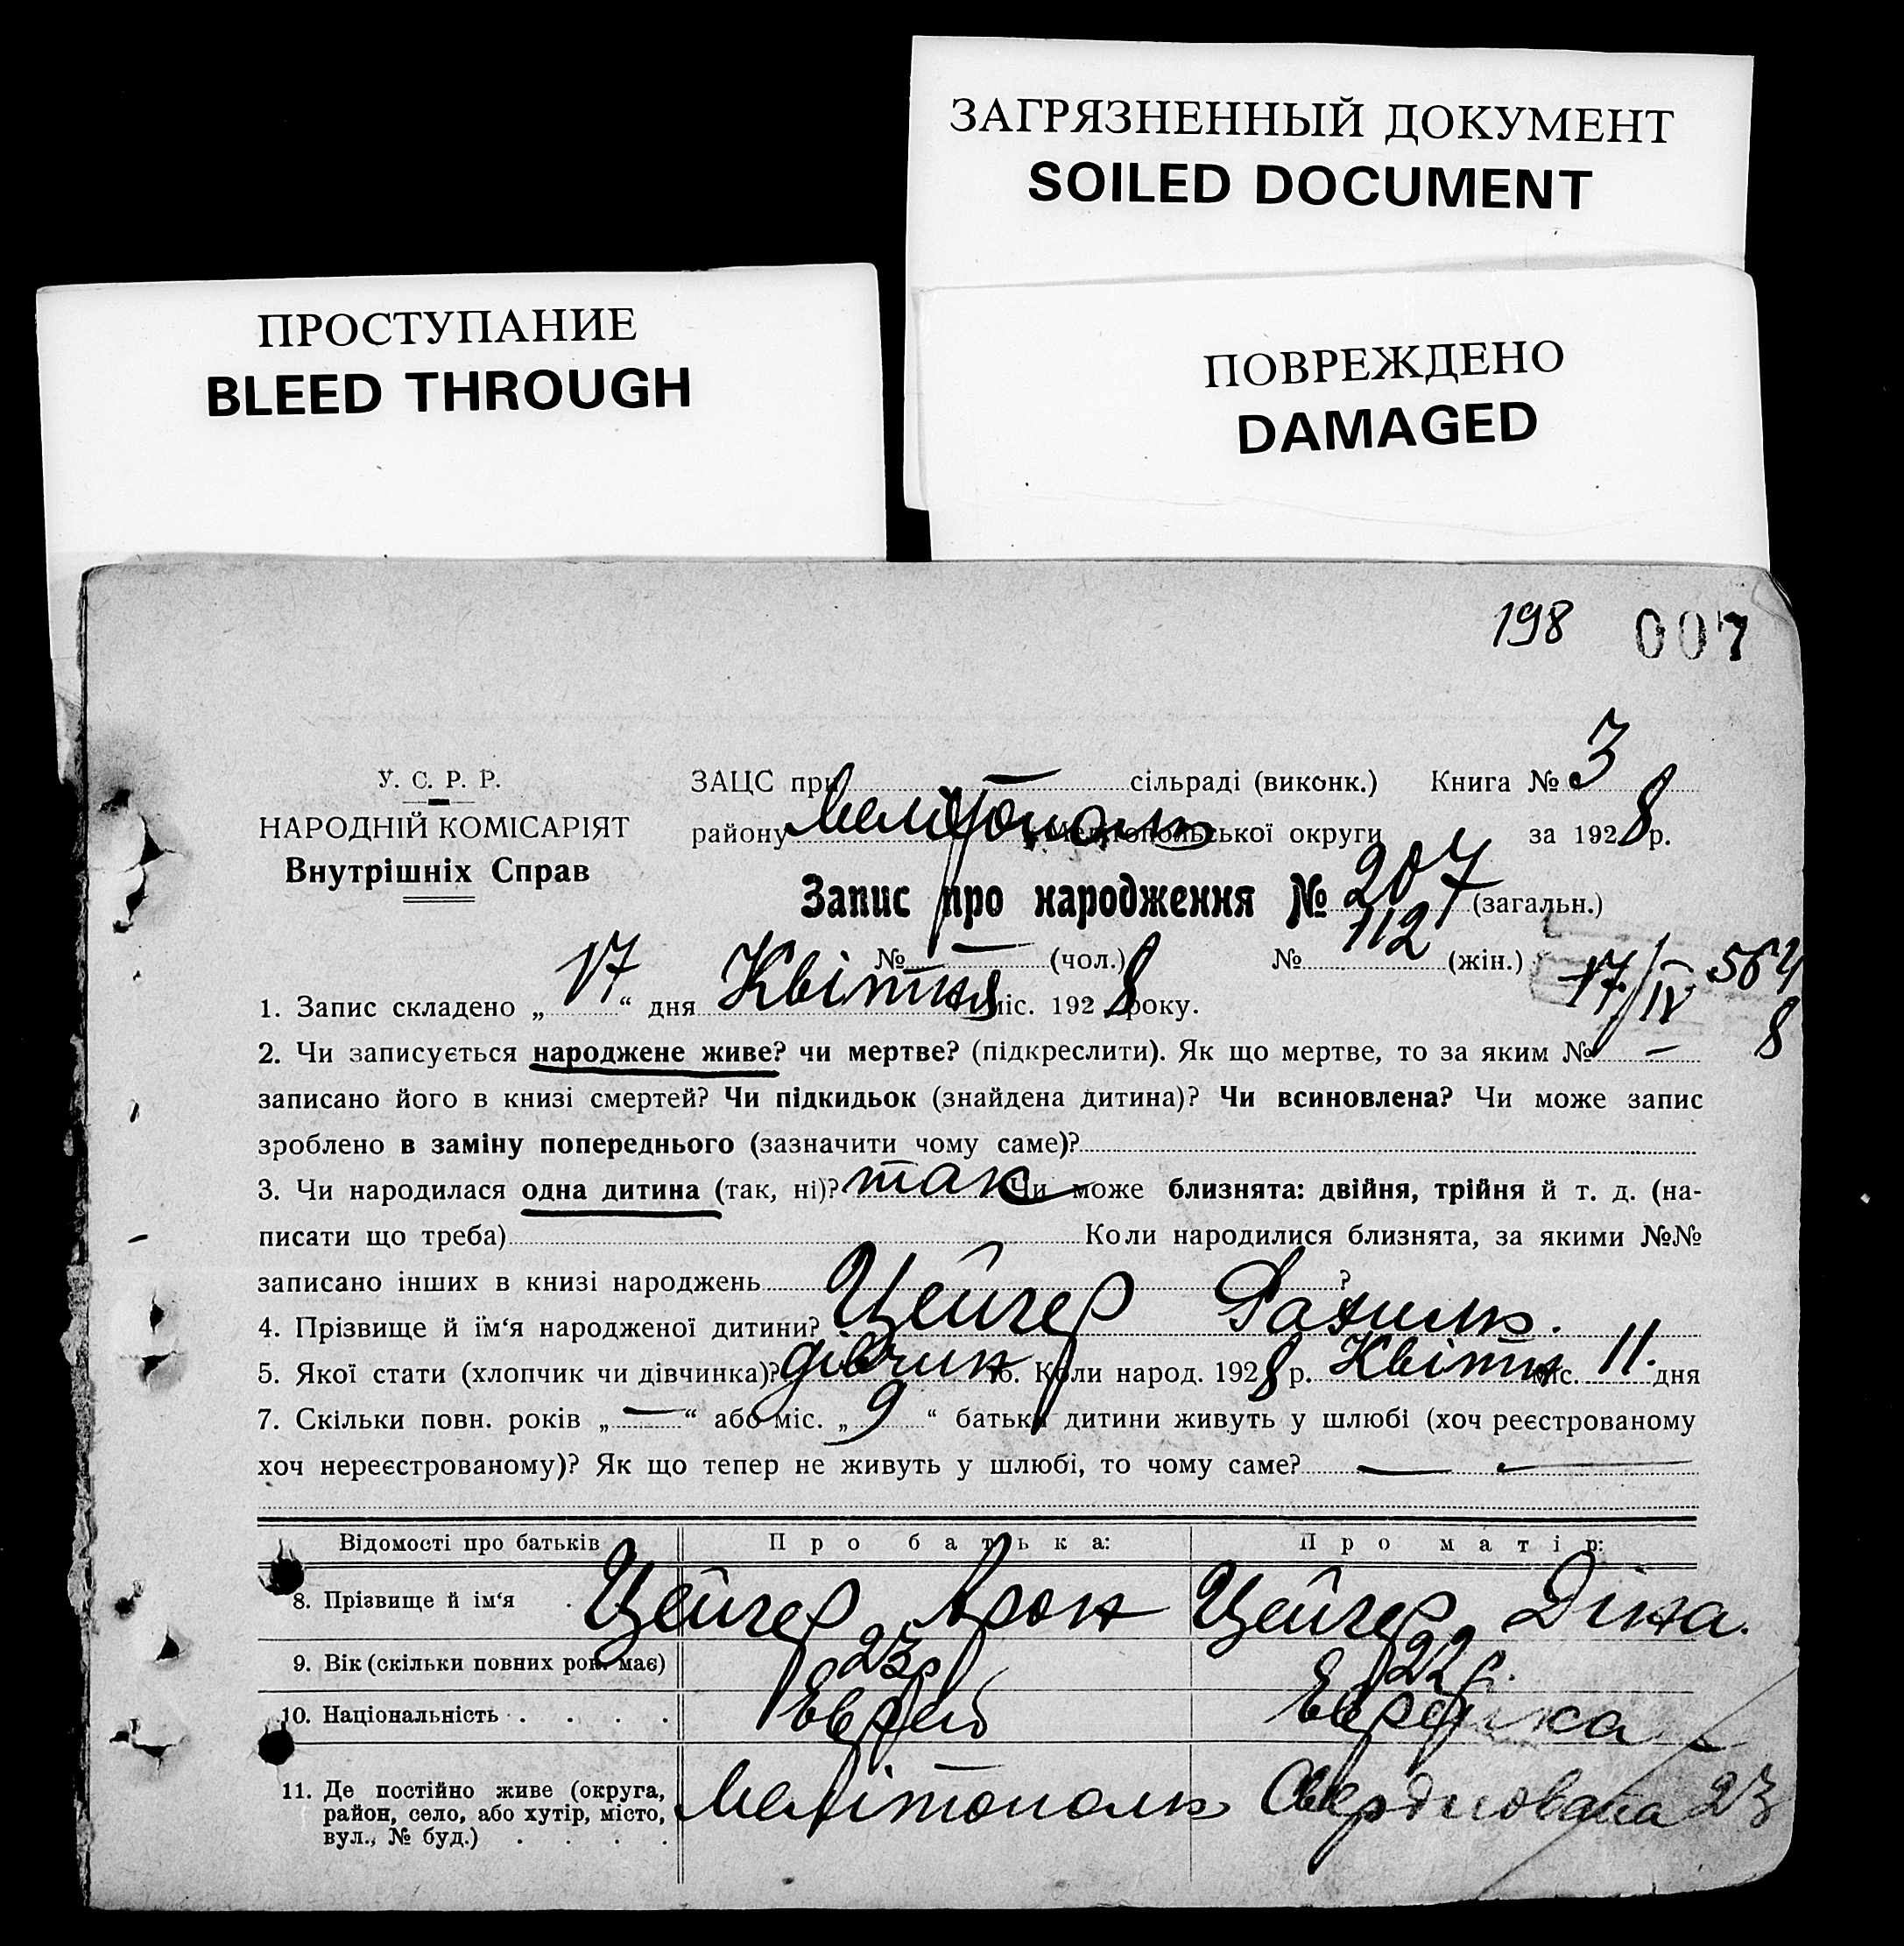 ЗАГРЯЗНЕННЫЙ ДОКУМЕНТ
SOILED DOCUMENT
ПРОСТУПАНИЕ
BLEED THROUGH
ПОВРЕЖДЕНО
DAMAGED
198 007
У. С. Р. Р.
НАРОДНІЙ КОМІСАРІЯТ
Внутрішніх Справ
ЗАЦС при — сільраді (виконк.) Книга № 3
району Мелітополь Мелітопольської округи за 1928 р.
Запис про народження № 207 (загальн.)
№ — (чол.) № 112 (жін.)
17/IV 564
8
1. Запис складено „17“ дня Квітня міс. 1928 року.
2. Чи записується народжене живе? чи мертве? (підкреслити). Як що мертве, то за яким № —
записано його в книзі смертей? Чи підкидьок (знайдена дитина)? Чи всиновлена? Чи може запис
зроблено в заміну попереднього (зазначити чому саме)?
3. Чи народилася одна дитина (так, ні)? так Чи може близнята: двійня, трійня й т. д. (на-
писати що треба) Коли народилися близнята, за якими №№
записано інших в книзі народжень ?
4. Прізвище й ім‘я народженої дитини? Цейгер Рахиль.
5. Якої стати (хлопчик чи дівчинка)? дівчин 6. Коли народ. 1928 р. Квітня міс. 11. дня
7. Скільки повн. років „—“ або міс. „9“ батьки дитини живуть у шлюбі (хоч реєстрованому
хоч нереєстрованому)? Як що тепер не живуть у шлюбі, то чому саме? — —
Відомості про батьків Про батька: Про матір:
8. Прізвище й ім‘я . Цейгер Арон Цейгер Діна.
9. Вік (скільки повних рок. має) 23 р 22 р.
10. Національність . . . . Еврей Еврейка
11. Де постійно живе (округа,
район, село, або хутір, місто,
вул., № буд.) . . . .
Мелітополь Свердловата 23